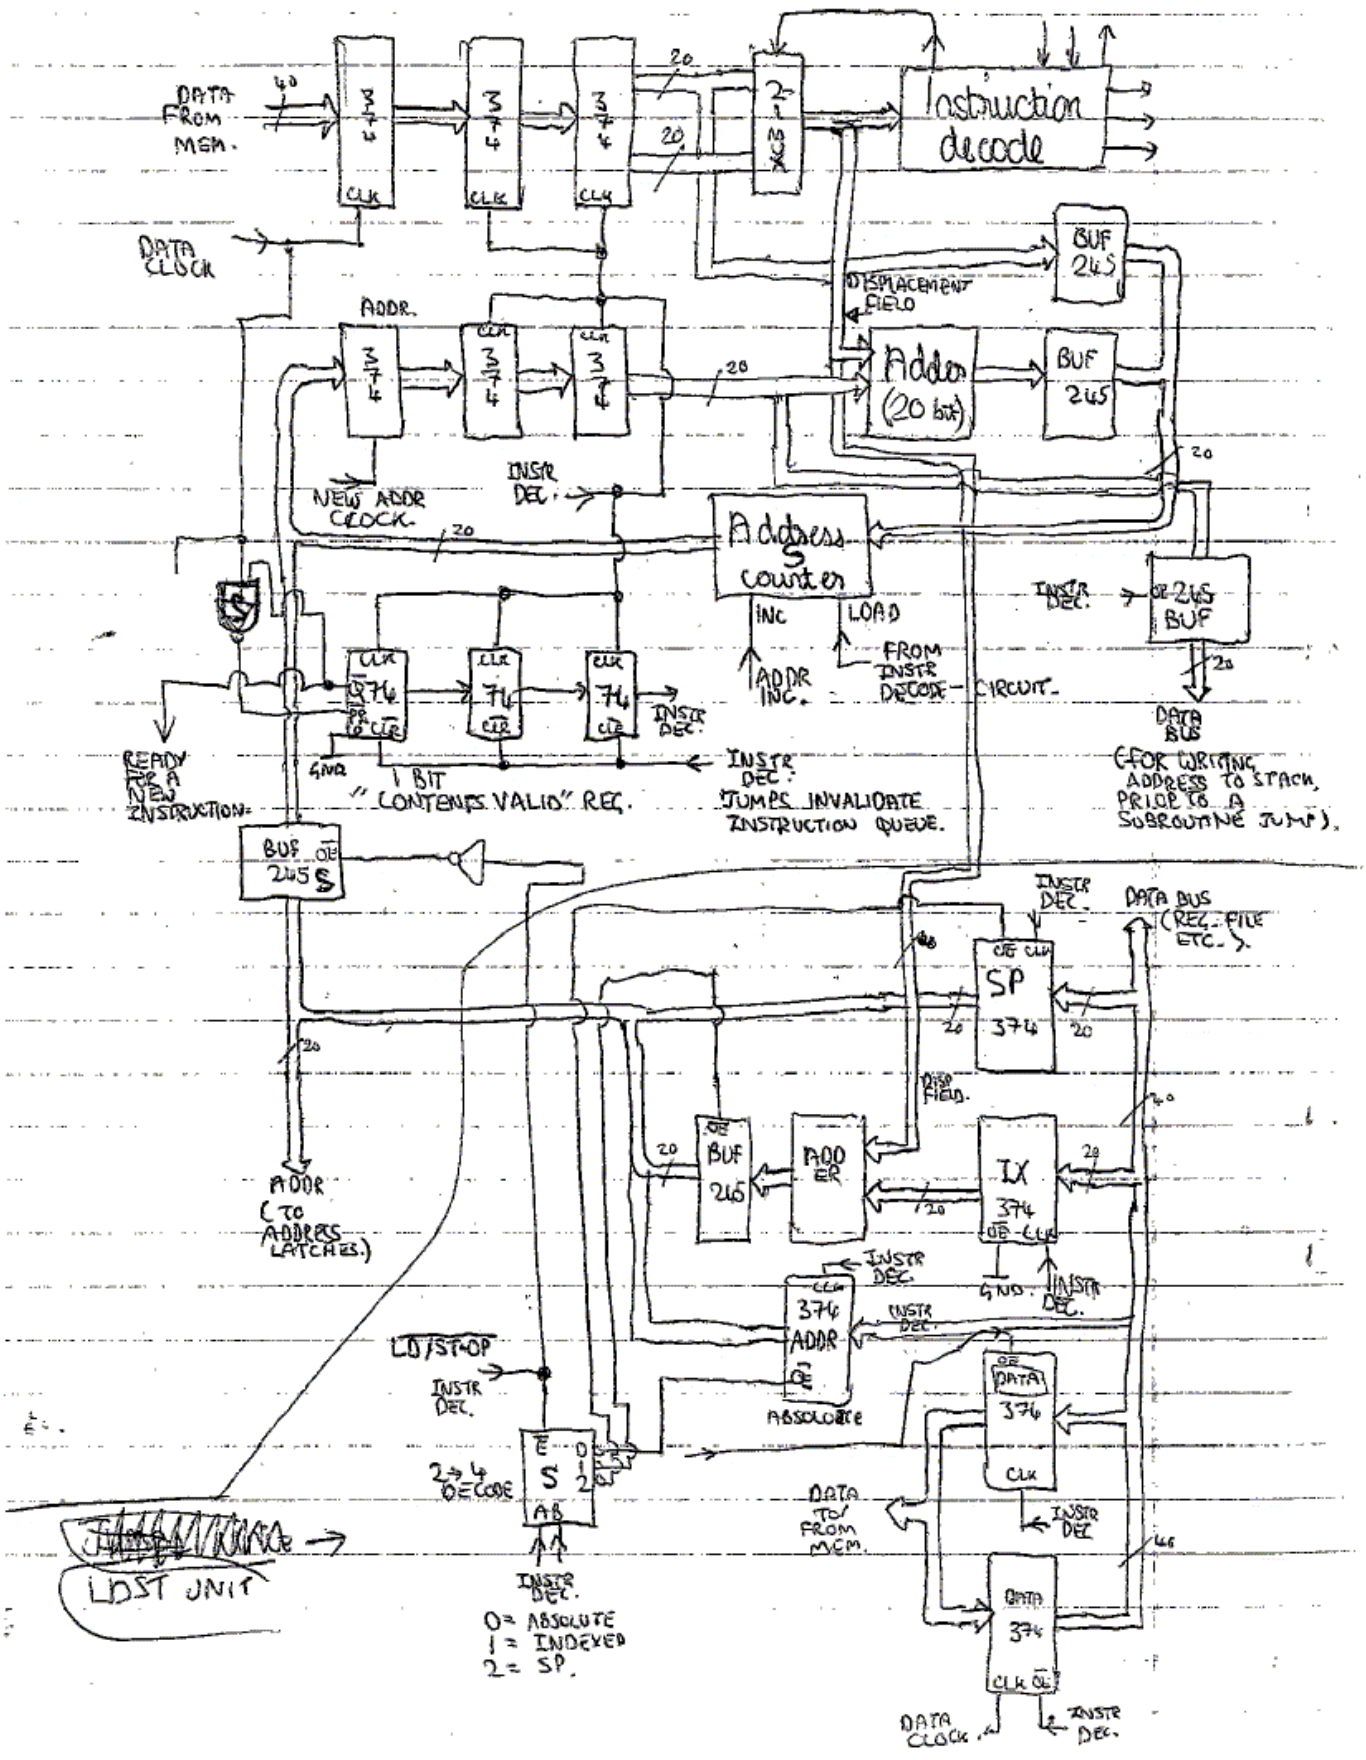 DATA
FROM
MEM.
40
374
CLK
374
CLK
374
CLK
20
20
2-1
Instruction
decode
DATA
CLOCK
BUF
245
DISPLACEMENT
FIELD
ADDR.
374
CLK
374
CLK
374
20
Adder
(20 bit)
BUF
245
20
NEW ADDR
CLOCK.
INSTR
DEC.
20
Address
S
counter
INC
LOAD
ADDR
INC.
FROM
INSTR
DECODE - CIRCUIT.
INSTR
DEC.
OE 245
BUF
20
DATA
BUS
(FOR WRITING
ADDRESS TO STACK,
PRIOR TO A
SUBROUTINE JUMP).
S
CLK
Q 74
PR
CLR
CLK
74
CLR
CLK
74
CLR
INSTR
DEC.
READY
FOR A
NEW
INSTRUCTION.
GND
1 BIT
"CONTENTS VALID" REG.
INSTR
DEC:
JUMPS INVALIDATE
INSTRUCTION QUEUE.
BUF OE
245 S
INSTR
DEC.
DATA BUS
(REG. FILE
ETC.).
OE CLK
SP
374
20
20
20
ADDR
(TO
ADDRESS
LATCHES.)
DISP
FIELD.
40
OE
BUF
245
20
ADD
ER
20
IX
374
OE CLK
20
GND.
INSTR
DEC.
INSTR
DEC.
CLK
374
ADDR
OE
ABSOLUTE
INSTR
DEC.
LD/ST OP
INSTR
DEC.
OE
DATA
374
CLK
INSTR
DEC
2→4
DECODE
E
S
0
1
2
AB
INSTR
DEC.
0 = ABSOLUTE
1 = INDEXED
2 = SP.
DATA
TO/
FROM
MEM.
40
DATA
374
CLK OE
DATA
CLOCK.
INSTR
DEC.
LDST UNIT